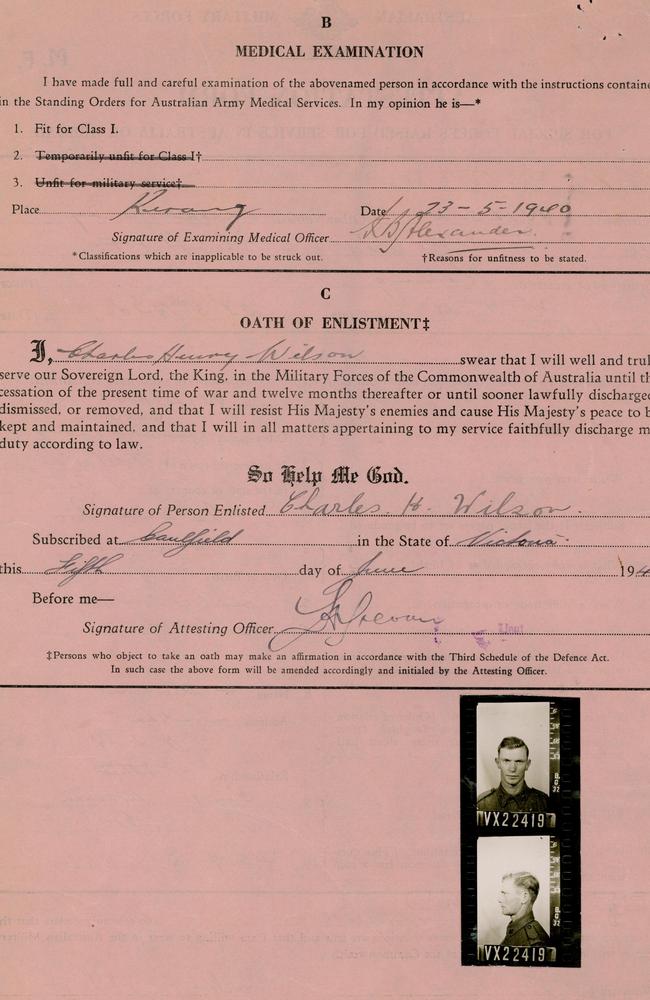 B
MEDICAL EXAMINATION
I have made full and careful examination of the abovenamed person in accordance with the instructions containe
in the Standing Orders for Australian Army Medical Services. In my opinion he is—*
1. Fit for Class I.
2. Temporarily unfit for Class I†
3. Unfit for military service†
Place Kerang Date 23-5-1940
Signature of Examining Medical Officer Alexander.
*Classifications which are inapplicable to be struck out. †Reasons for unfitness to be stated.
C
OATH OF ENLISTMENT‡
I, Charles Henry Wilson swear that I will well and trul
serve our Sovereign Lord, the King, in the Military Forces of the Commonwealth of Australia until th
cessation of the present time of war and twelve months thereafter or until sooner lawfully discharged
dismissed, or removed, and that I will resist His Majesty's enemies and cause His Majesty's peace to b
kept and maintained, and that I will in all matters appertaining to my service faithfully discharge m
duty according to law.
So Help Me God.
Signature of Person Enlisted Charles H. Wilson.
Subscribed at Caulfield in the State of Victoria.
this Fifth day of June 194
Before me—
Signature of Attesting Officer
Lieut
‡Persons who object to take an oath may make an affirmation in accordance with the Third Schedule of the Defence Act.
In such case the above form will be amended accordingly and initialed by the Attesting Officer.
VX22419
VX22419